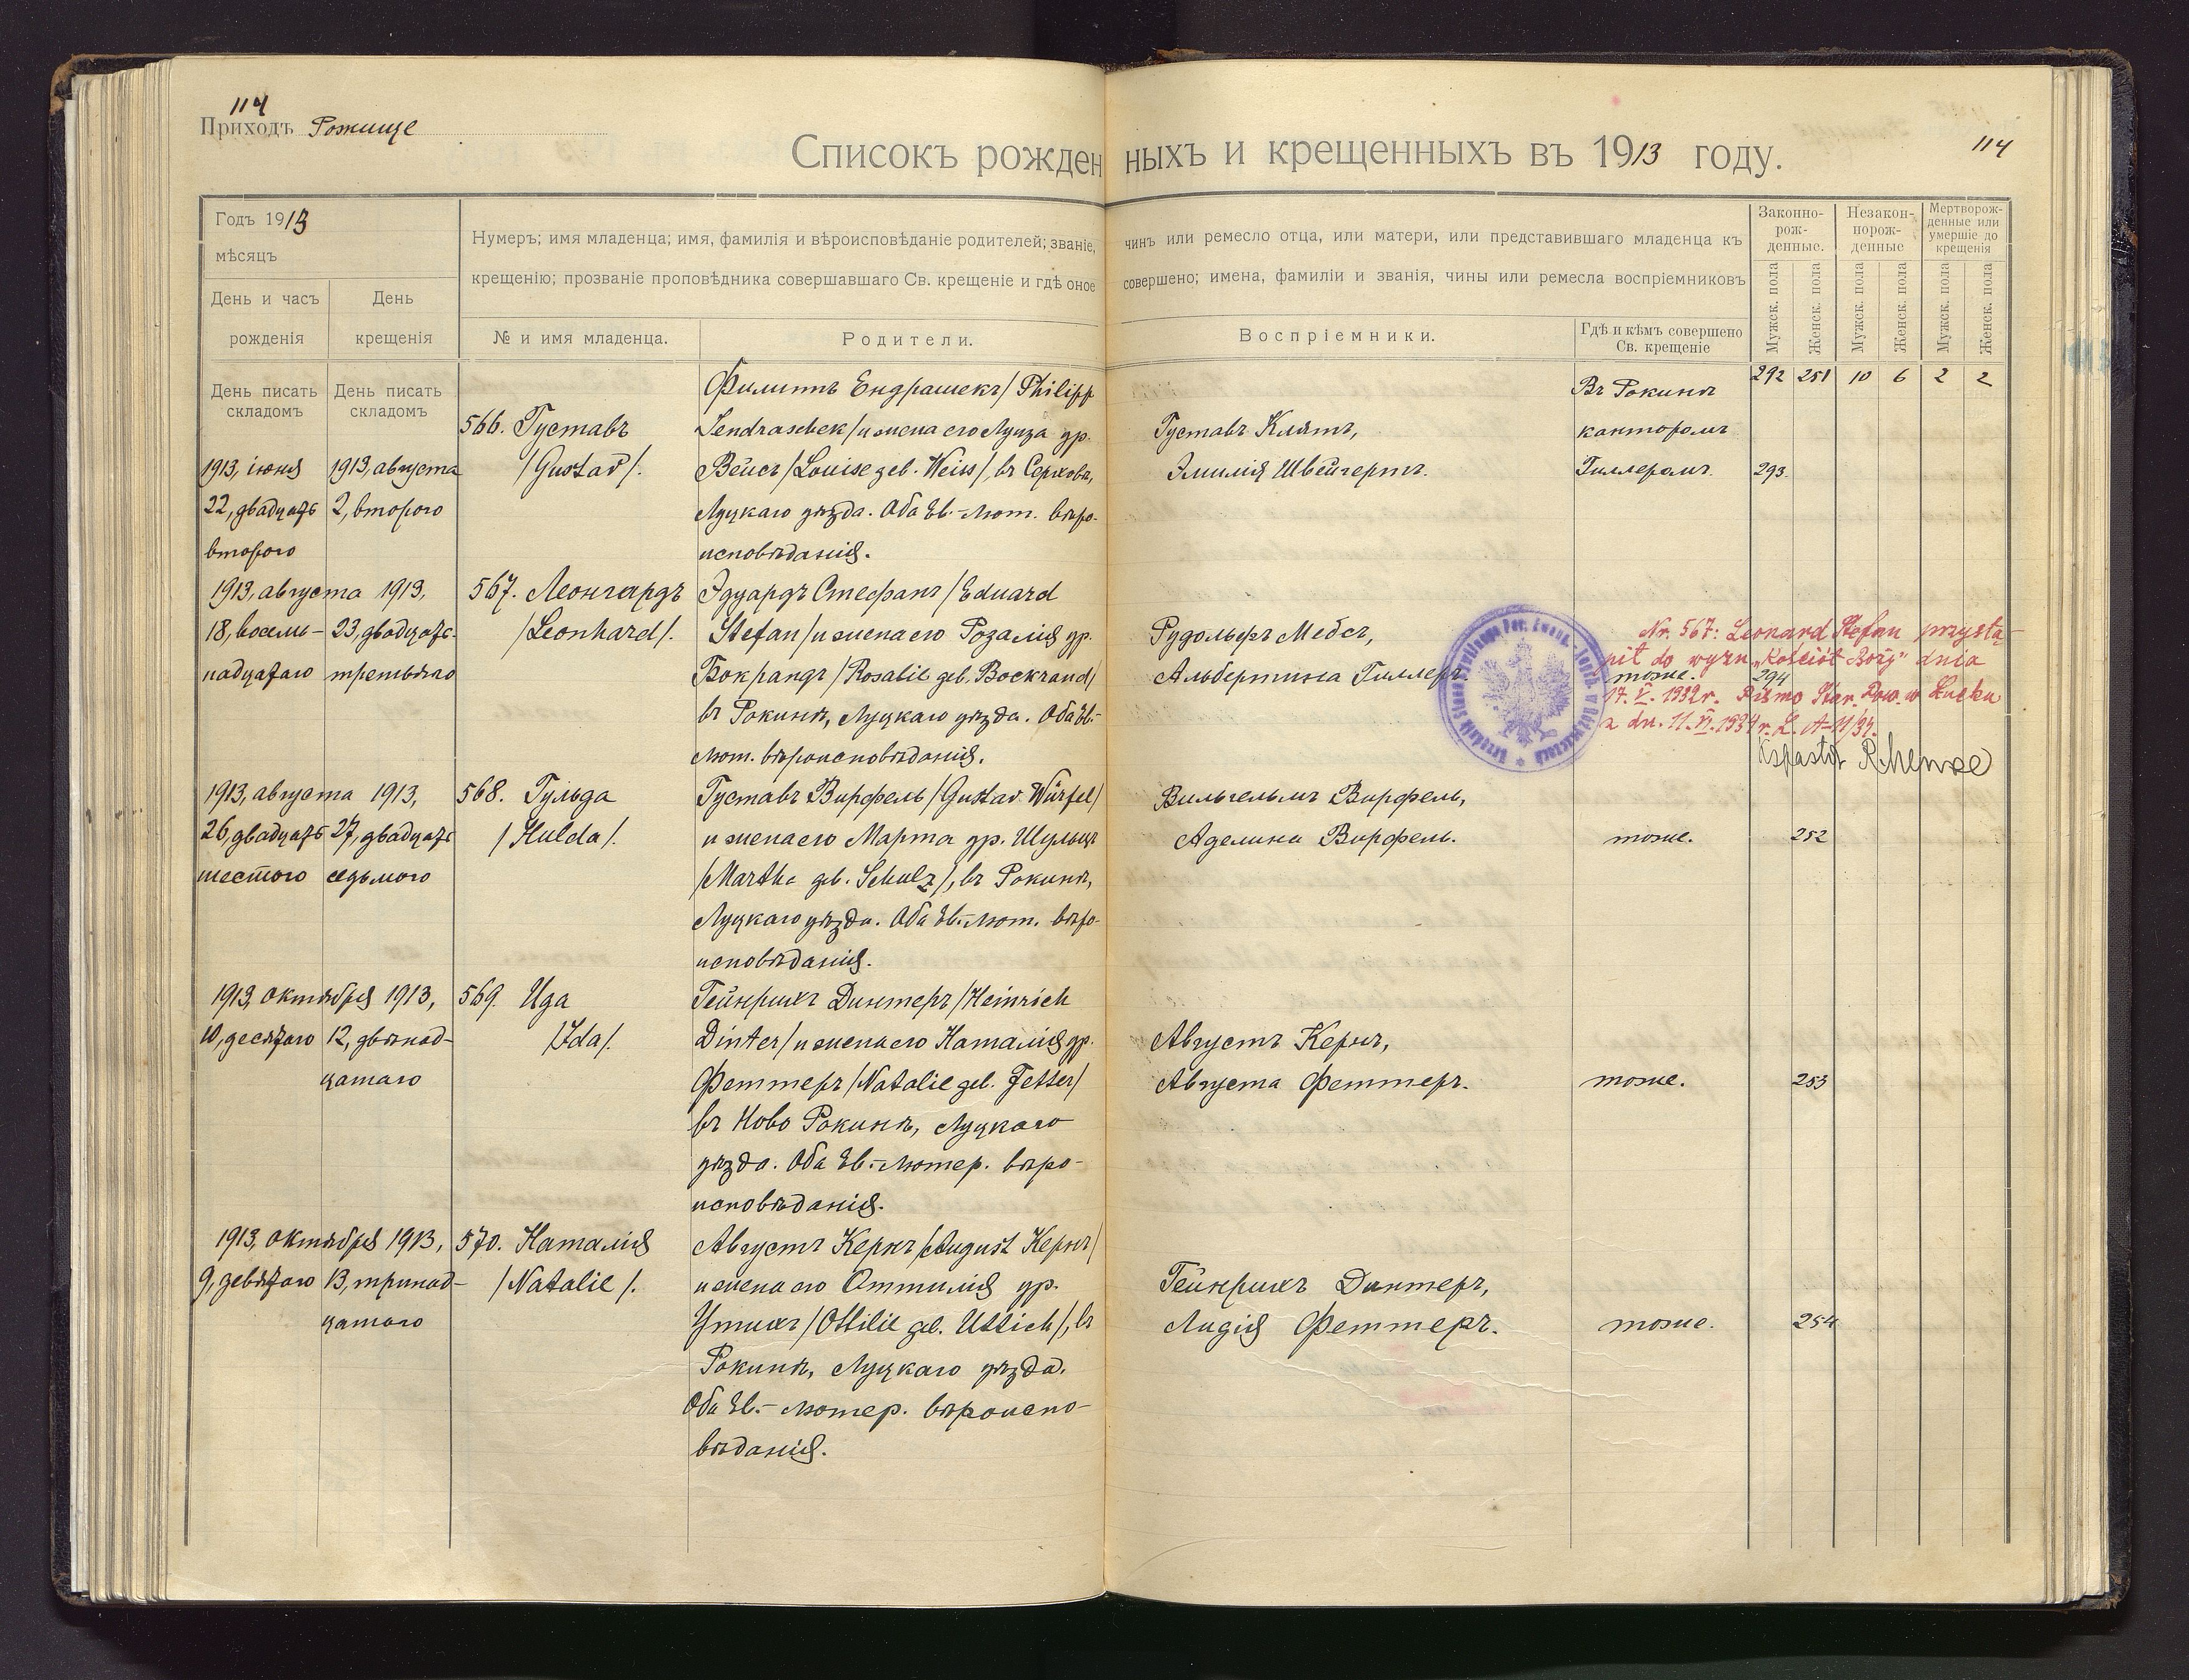 114
Приходъ Рожище
Списокъ рожденныхъ и крещенныхъ въ 1913 году.
114
Годъ 1913
мѣсяцъ
День и часъ рожденія
День крещенія
Нумеръ; имя младенца; имя, фамилія и вѣроисповѣданіе родителей; званіе, чинъ или ремесло отца, или матери, или представившаго младенца къ
крещенію; прозваніе проповѣдника совершавшаго Св. крещеніе и гдѣ оное совершено; имена, фамиліи и званія, чины или ремесла воспріемниковъ
№ и имя младенца.
Родители.
Воспріемники.
Гдѣ и кѣмъ совершено
Св. крещеніе
Законно-
рож-
денные.
Незакон-
норож-
денные
Мертворож-
денные или
умершіе до
крещенія
Мужск. пола
Женск. пола
Мужск. пола
Женск. пола
Мужск. пола
Женск. пола
День писать
складомъ
День писать
складомъ
292 251 10 6 2 2
1913, іюня
22, двадцать
второго
1913, августа
2, второго
566. Густавъ
/Gustav/.
Филиппъ Ендрашекъ/Philipp
Jendraschek/и жена его Луиза ур.
Вейсъ/Louise geb. Weiss/, въ Серхова,
Луцкаго уѣзда. Оба Ев.-Лют. вѣро-
исповѣданія.
Густавъ Клятъ,
Эмилія Швейгертъ.
Въ Рокинѣ
канторомъ
Гиллеромъ.
293.
1913, августа
18, восем-
надцатаго
1913,
23, двадцать-
третьяго
567. Леонгардъ
/Leonhard/.
Эдуардъ Стефанъ/Eduard
Stefan/и жена его Розалія ур.
Бокрандъ/Rosalie geb. Bockrand/
въ Рокинѣ, Луцкаго уѣзда. Оба Ев.-
Лют. вѣроисповѣданія.
Рудольфъ Мебсъ,
Альбертина Гиллеръ.
тоже.
294
Nr. 567: Leonard Stefan przystą-
pił do wyzn. „Kościół Boży" dnia
17. V. 1932 r. Pismo Star. Pow. w Łucku
z dn. 11. VI. 1934 r. L. A-11/34.
Ks pastor R. Henke
1913, августа
26, двадцать
шестого
1913,
27, двадцать
седьмого
568. Гульда
/Hulda/.
Густавъ Вирфель/Gustav Würfel/
и жена его Марта ур. Шульцъ
/Martha geb. Schulz/, въ Рокинѣ,
Луцкаго уѣзда. Оба Ев.-Лют. вѣро-
исповѣданія.
Вильгельмъ Вирфель,
Аделина Вирфель.
тоже.
252
1913, октября
10, десятаго
1913,
12, двѣнад-
цатаго
569. Ида
/Ida/.
Гейнрихъ Динтеръ/Heinrich
Dinter/и жена его Наталія ур.
Феттеръ/Natalie geb. Fetter/
въ Ново Рокинѣ, Луцкаго
уѣзда. Оба Ев.-Лютер. вѣро-
исповѣданія.
Августъ Кернъ,
Августа Феттеръ.
тоже.
253
1913, октября
9, девятаго
1913,
13, тринад-
цатаго
570. Наталія
/Natalie/.
Августъ Кернъ/August Kернъ/
и жена его Оттилія ур.
Утихъ/Ottilie geb. Uttich/, въ
Рокинѣ, Луцкаго уѣзда.
Оба Ев.-Лютер. вѣроиспо-
вѣданія.
Гейнрихъ Динтеръ,
Лидія Феттеръ.
тоже.
254